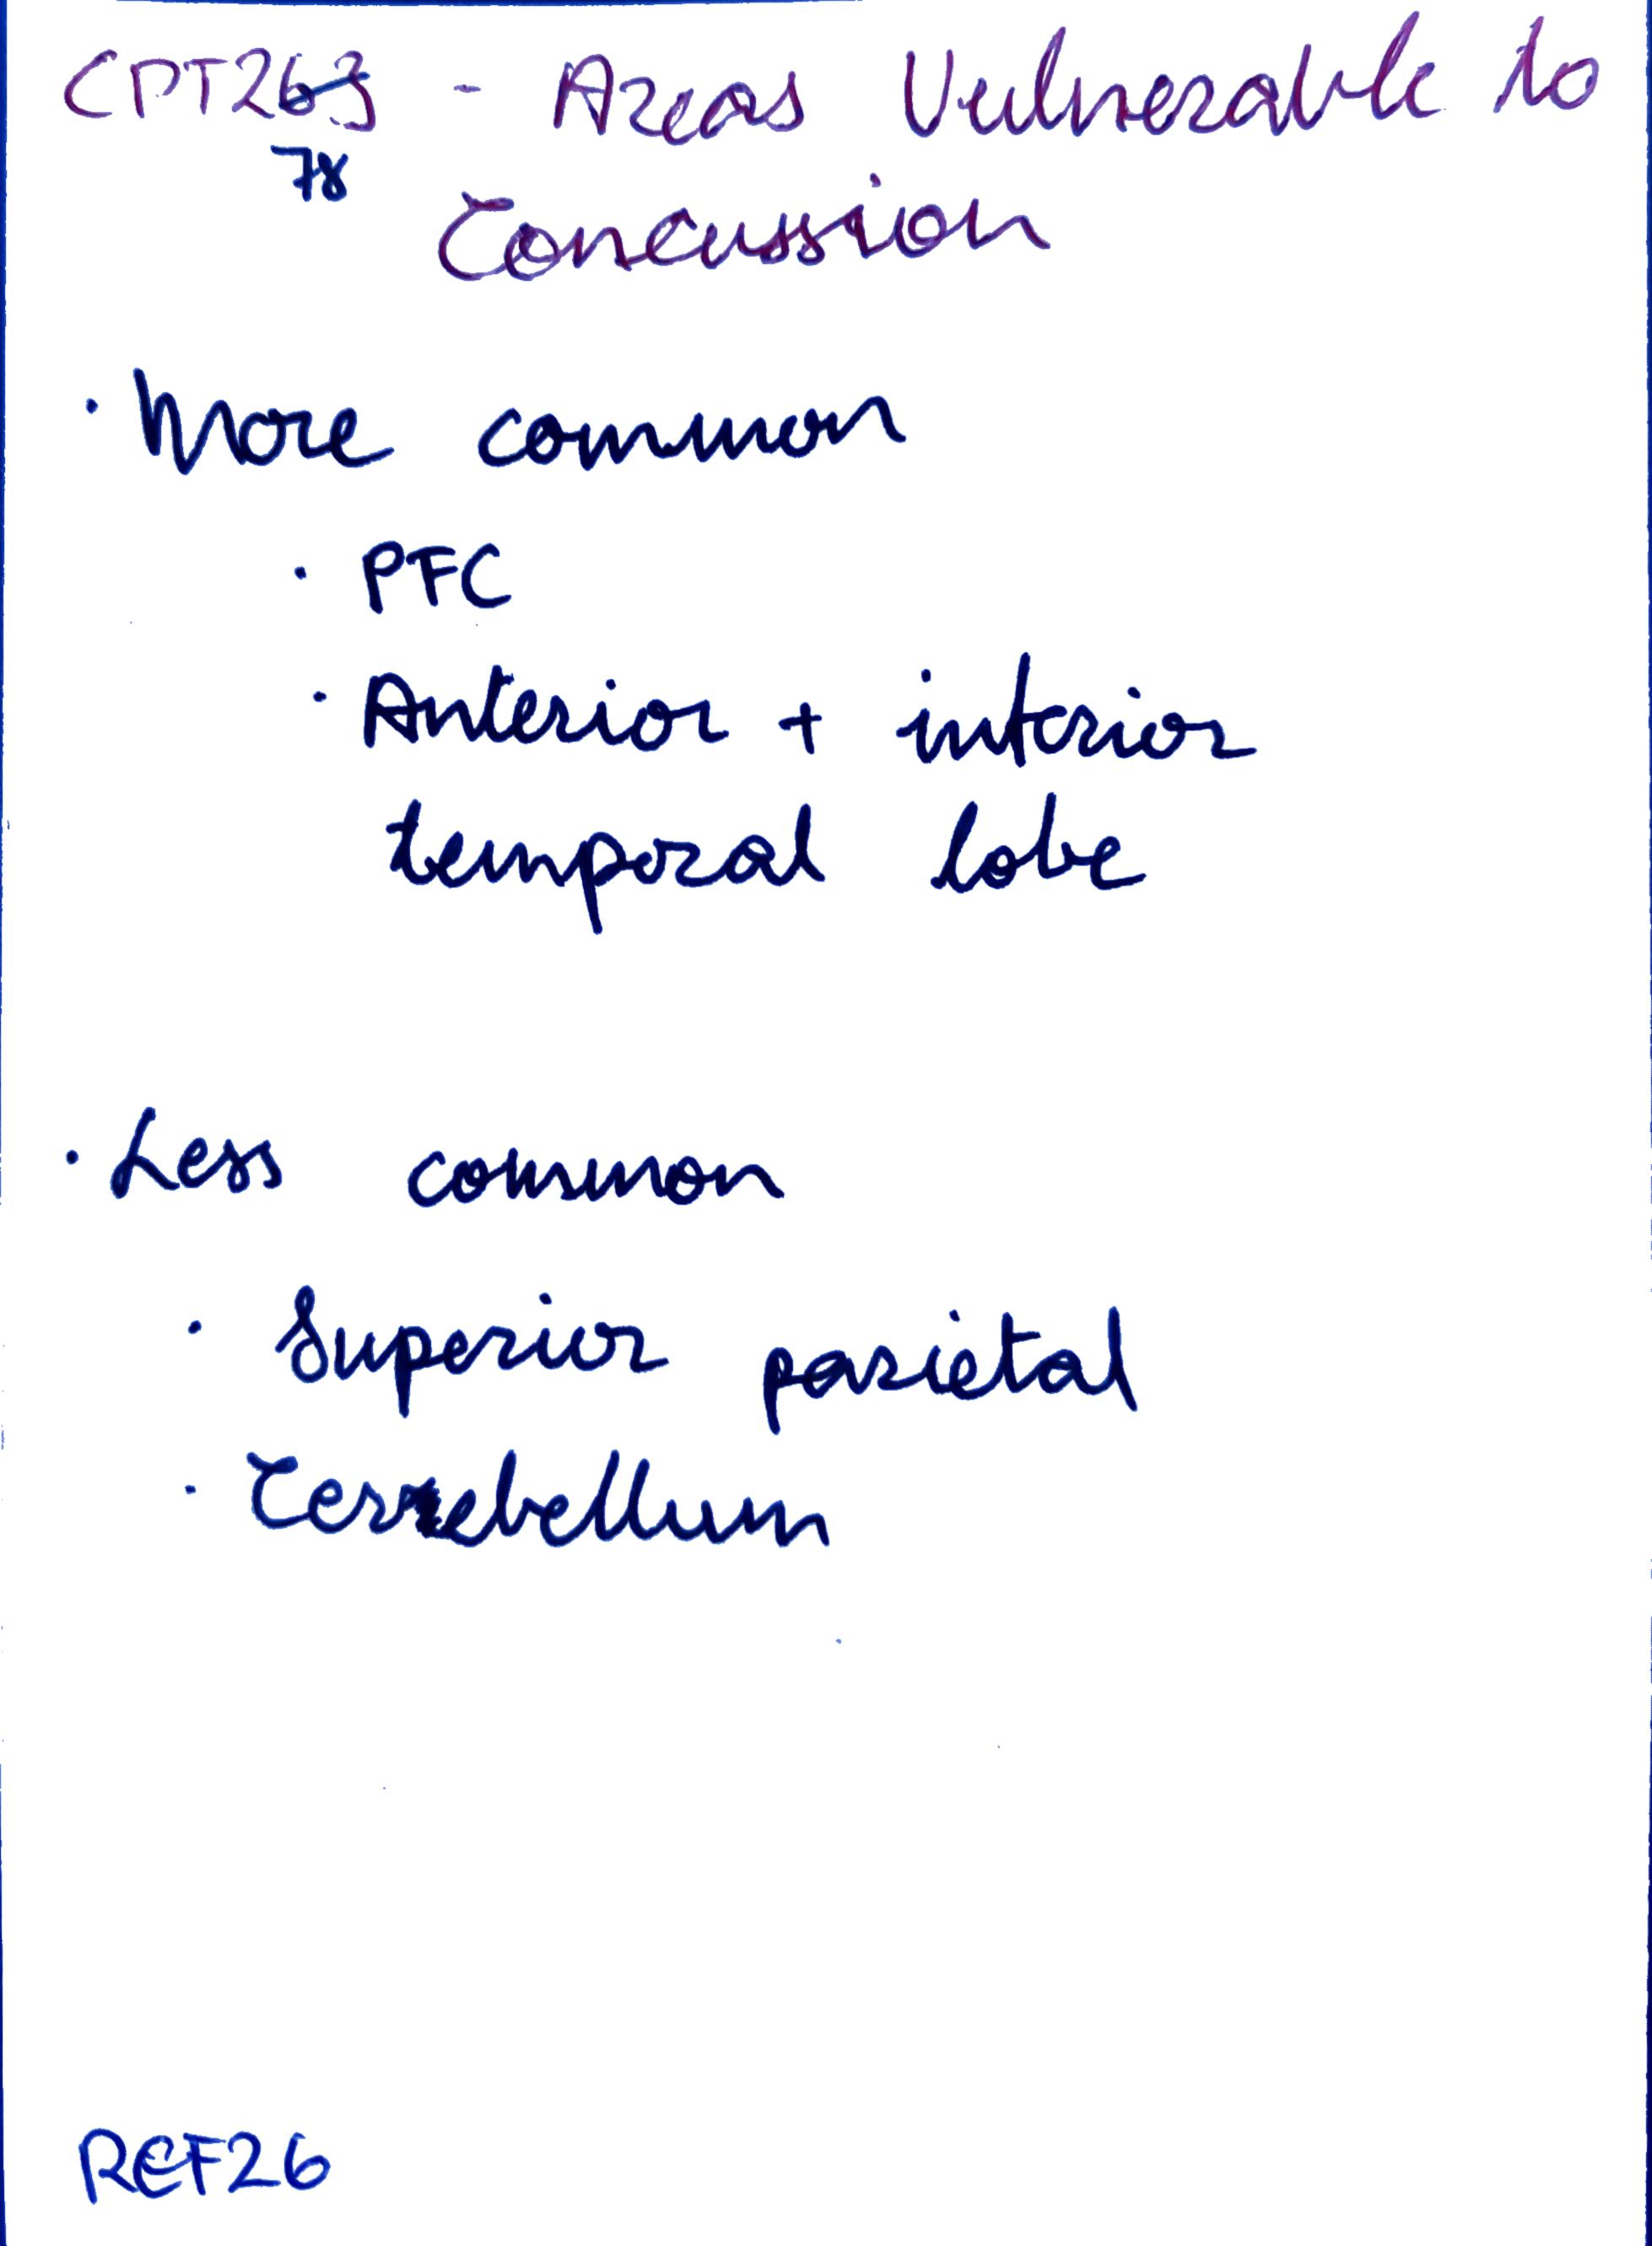 CPT263 - Areas Vulnerable to
78
Concussion
· More common
· PFC
· Anterior + inferior
temporal lobe
· Less common
· Superior parietal
· Cerebellum
REF26